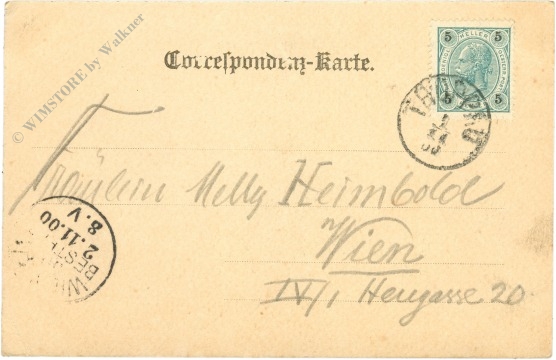 © WIMSTORE by Walkner
Correspondenz-Karte.
5 HELLER 5
5 5
Fräulein Melly Heimbold
Wien
IV/1 Heugasse 20
WIEN
BESTELLT
2.11.00
8.V